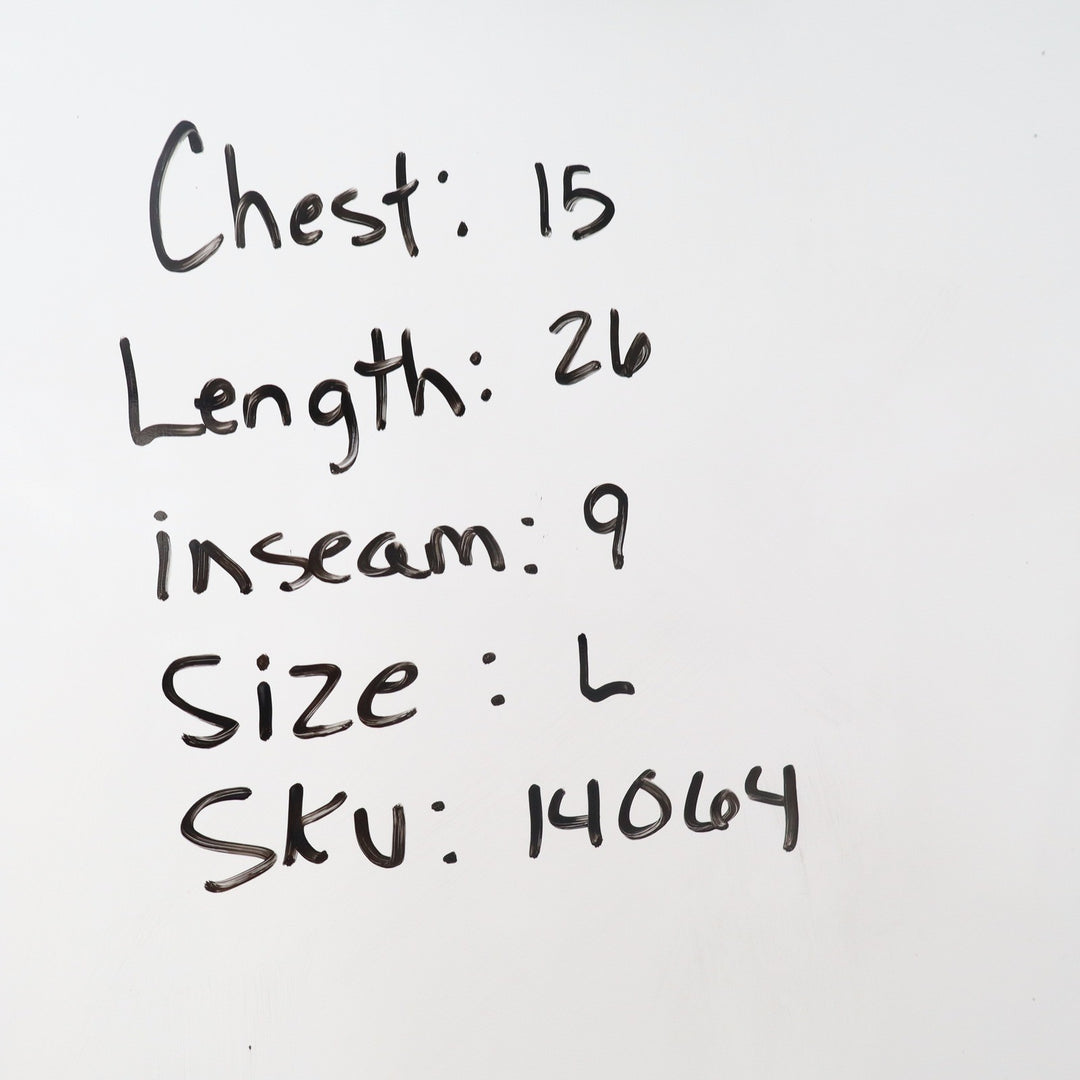 Chest: 15
Length: 26
inseam: 9
Size: L
Sku: 14064